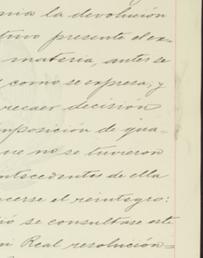 nia la devolución
tivo presente el ex-
materia, antes se
como se expresa; y
recaer decisión
mposición de gua-
ue no se tuvieron
ntecedentes de ella
cerse el reintegro:
ió se consultase este
n Real resolución=